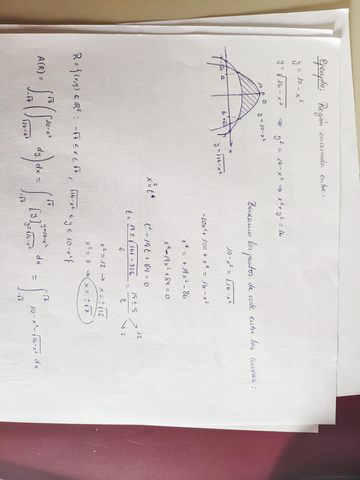 Ejemplo: Región encerrada entre:
y = 10 - x²
y = √(16-x²) ⇒ y² = 16-x² ⇒ x²+y² = 16
Buscamos los puntos de corte entre las curvas:
10 - x² = √(16-x²)
-20x² + 100 + x⁴ = 16 - x²
x⁴ = +19x² - 84
x⁴ - 19x² + 84 = 0
x² = t
t² - 19t + 84 = 0
t = (19 ± √(361-336))/2 = (19 ± 5)/2 → 12
→ 7
x² = 12 → x = ±√12
x² = 7 → x = ±√7
y = 10-x²
y = √(16-x²)
R = {(x,y) ∈ R² : -√7 ≤ x ≤ √7, √(16-x²) ≤ y ≤ 10-x²}
A(R) = ∫_{-√7}^{√7} (∫_{√(16-x²)}^{10-x²} dy) dx = ∫_{-√7}^{√7} [y]_{y=√(16-x²)}^{y=10-x²} dx = ∫_{-√7}^{√7} 10-x²-√(16-x²) dx =